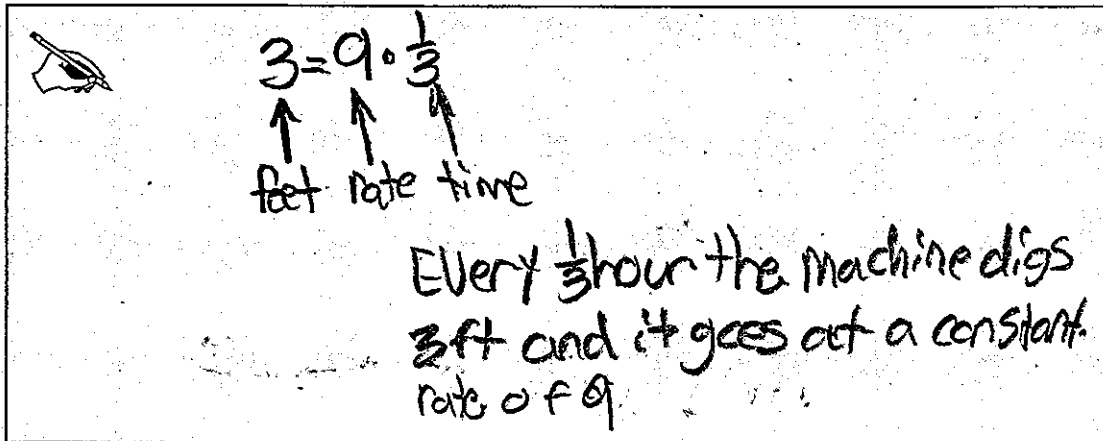 3=9•1/3
feet rate time
Every 1/3 hour the machine digs
3ft and it goes at a constant.
rate of 9